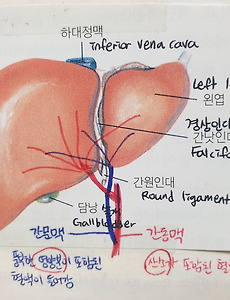 하대정맥
Inferior vena cava
Left l
왼엽
경상인대
간낫인대
Falcifo
간원인대
Round ligament
담낭
Gallbladder
간문맥
간동맥
풍부한 영양분이 포함된
혈액이 들어감
산소가 포함된 혈